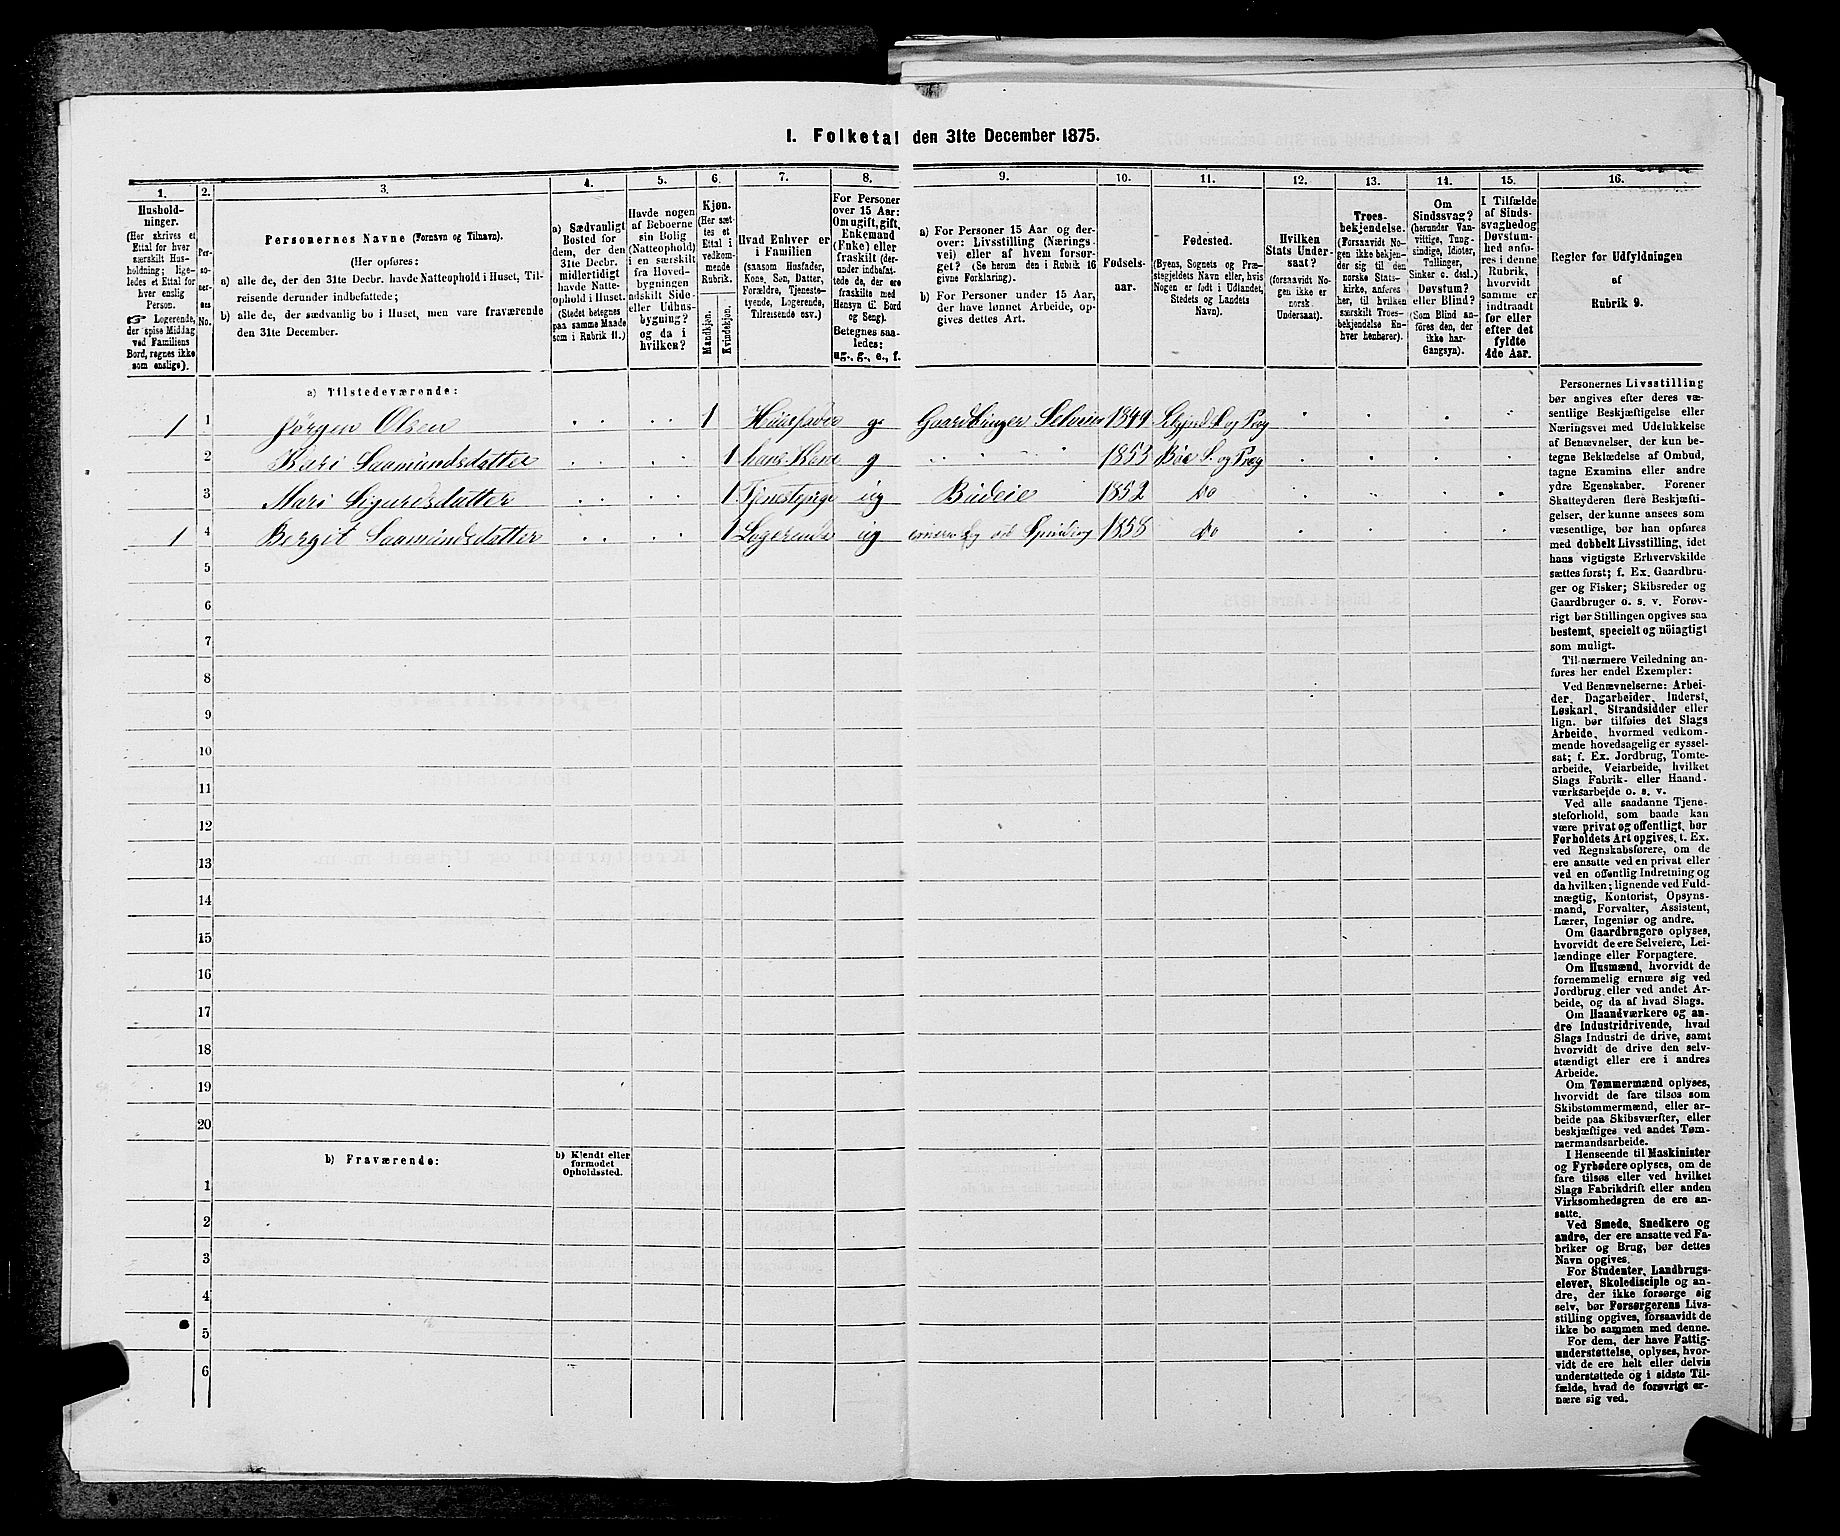 I. Folketal den 31te December 1875.
1. 2. 3. 4. 5. 6. 7. 8. 9. 10. 11. 12. 13. 14. 15. 16.
Husholdninger.
(Her skrives et
Ettal for hver
særskilt Husholdning;
ligeledes
et Ettal for
hver enslig
Person.
☞ Logerende,
der spise Middag
ved Familiens
Bord, regnes ikke
som enslige).
Personernes No.
Personernes Navne (Fornavn og Tilnavn).
(Her opføres:
a) alle de, der den 31te Decbr. havde Natteophold i Huset, Tilreisende
derunder indbefattede;
b) alle de, der sædvanlig bo i Huset, men vare fraværende
den 31te December.
a) Sædvanligt
Bosted for
dem, der den
31te Decbr.
midlertidigt
havde Natteophold
i Huset.
(Stedet betegnes
paa samme Maade
som i Rubrik 11.)
Havde nogen
af Beboerne
sin Bolig
(Natteophold)
i en særskilt
fra Hovedbygningen
adskilt Side-
eller Udhusbygning?
og da i
hvilken?
Kjøn.
(Her sættes
et
Ettal i
vedkommende
Rubrik.
Mandkjøn.
Kvindekjøn.
Hvad Enhver er
i Familien
(saasom Husfader,
Kone, Søn, Datter,
Forældre, Tjenestetyende,
Logerende,
Tilreisende osv.)
For Personer
over 15 Aar:
Om ugift, gift,
Enkemand
(Enke) eller
fraskilt (derunder
indbefattede
de, der ere
fraskilte med
Hensyn til Bord
og Seng).
Betegnes saaledes:
ug., g., e., f.
a) For Personer 15 Aar og derover:
Livsstilling (Næringsvei)
eller af hvem forsørget?
(Se herom den i Rubrik 16
givne Forklaring).
b) For Personer under 15 Aar,
der have lønnet Arbeide, opgives
dettes Art.
Fødselsaar.
Fødested.
(Byens, Sognets og Præstegjeldets
Navn eller, hvis
Nogen er født i Udlandet,
Stedets og Landets
Navn).
Hvilken
Stats Undersaat?
(forsaavidt Nogen
ikke er
norsk
Undersaat).
Troesbekjendelse.
(Forsaavidt Nogen
ikke bekjender
sig til den
norske Statskirke,
anføres
her, til hvilken
særskilt Troesbekjendelse
Enhver
henhører).
Om
Sindssvag?
(herunder Vanvittige,
Tungsindige,
Idioter,
Tullinger,
Sinker o. desl.)
Døvstum?
eller Blind?
(Som Blind anføres
den, der
ikke har
Gangsyn).
I Tilfælde
af Sindssvaghed
og
Døvstumhed
anføres
i denne
Rubrik,
hvorvidt
samme er
indtraadt
før eller
efter det
fyldte
4de Aar.
Regler for Udfyldningen
af
Rubrik 9.
a) Tilstedeværende:
1 1 Jørgen Olsen 1 Huusfader g. Gaardbruger Selveier 1849 S. og Præg
2 Kari Saamundsdatter 1 hans Kone g 1853 Bøe S. og Præg
3 Mari Sigurdsdatter 1 Tjenestpige ug Budeie 1852 Do
1 4 Bergit Saamundsdatter 1 Logerende ug ernærer sig ved Spinding 1858 Do
5
6
7
8
9
10
11
12
13
14
15
16
17
18
19
20
b) Fraværende:
b) Kjendt eller
formodet
Opholdssted.
1
2
3
4
5
6
Personernes Livsstilling
bør angives efter deres væsentlige
Beskjæftigelse eller
Næringsvei med Udelukkelse
af Benævnelser, der kun betegne
Beklædelse af Ombud,
tagne Examina eller andre
ydre Egenskaber. Forener
Skatteyderen flere Beskjæftigelser,
der kunne ansees som
væsentlige, bør han opføres
med dobbelt Livsstilling, idet
hans vigtigste Erhvervskilde
sættes først; f. Ex. Gaardbruger
og Fisker; Skibsreder og
Gaardbruger o. s. v. Forøvrigt
bør Stillingen opgives saa
bestemt, specielt og nöiagtigt
som muligt.
Til nærmere Veiledning anføres
her endel Exempler:
Ved Benævnelserne: Arbeider,
Dagarbeider, Inderst,
Løskarl, Strandsidder eller
lign. bør tilføies det Slags
Arbeide, hvormed vedkommende
hovedsagelig er sysselsat;
f. Ex. Jordbrug, Tomtearbeide,
Veiarbeide, hvilket
Slags Fabrik- eller Haandværksarbejde
o. s. v.
Ved alle saadanne Tjenesteforhold,
som baade kan
være privat og offentligt, bør
Forholdets Art opgives, t. Ex.
ved Regnskabsførere, om de
ere ansatte ved en privat eller
ved en offentlig Indretning og
da hvilken; lignende ved Fuldmægtig,
Kontorist, Opsynsmand,
Forvalter, Assistent,
Lærer, Ingeniør og andre.
Om Gaardbrugere oplyses,
hvorvidt de ere Selveiere, Leilændinge
eller Forpagtere.
Om Husmænd, hvorvidt de
fornemmelig ernære sig ved
Jordbrug eller ved andet Arbeide,
og da af hvad Slags.
Om Haandværkere og andre
Industridrivende, hvad
Slags Industri de drive, samt
hvorvidt de drive den selvstændigt
eller ere i andres
Arbeide.
Om Tømmermænd oplyses,
hvorvidt de fare tilsøs som
Skibstømmermænd, eller arbeide
paa Skibsværfter, eller
beskjæftiges ved andet Tømmermandsarbeide.
I Henseende til Maskinister
og Fyrbødere oplyses, om de
fare tilsøs eller ved hvilket
Slags Fabrikdrift eller anden
Virksomhedsgren de ere ansatte.
Ved Smede, Snedkere og
andre, der ere ansatte ved Fabriker
og Brug, bør dettes
Navn opgives.
For Studenter, Landbrugselever,
Skoledisciple og andre,
der ikke forsørge sig
selv, bør Forsørgerens Livsstilling
opgives, forsaavidt de
ikke bo sammen med denne.
For dem, der have Fattigunderstøttelse,
oplyses, hvorvidt
de ere helt eller delvis
understøttede og i sidste Tilfælde,
hvad de forøvrigt ernære
sig ved.